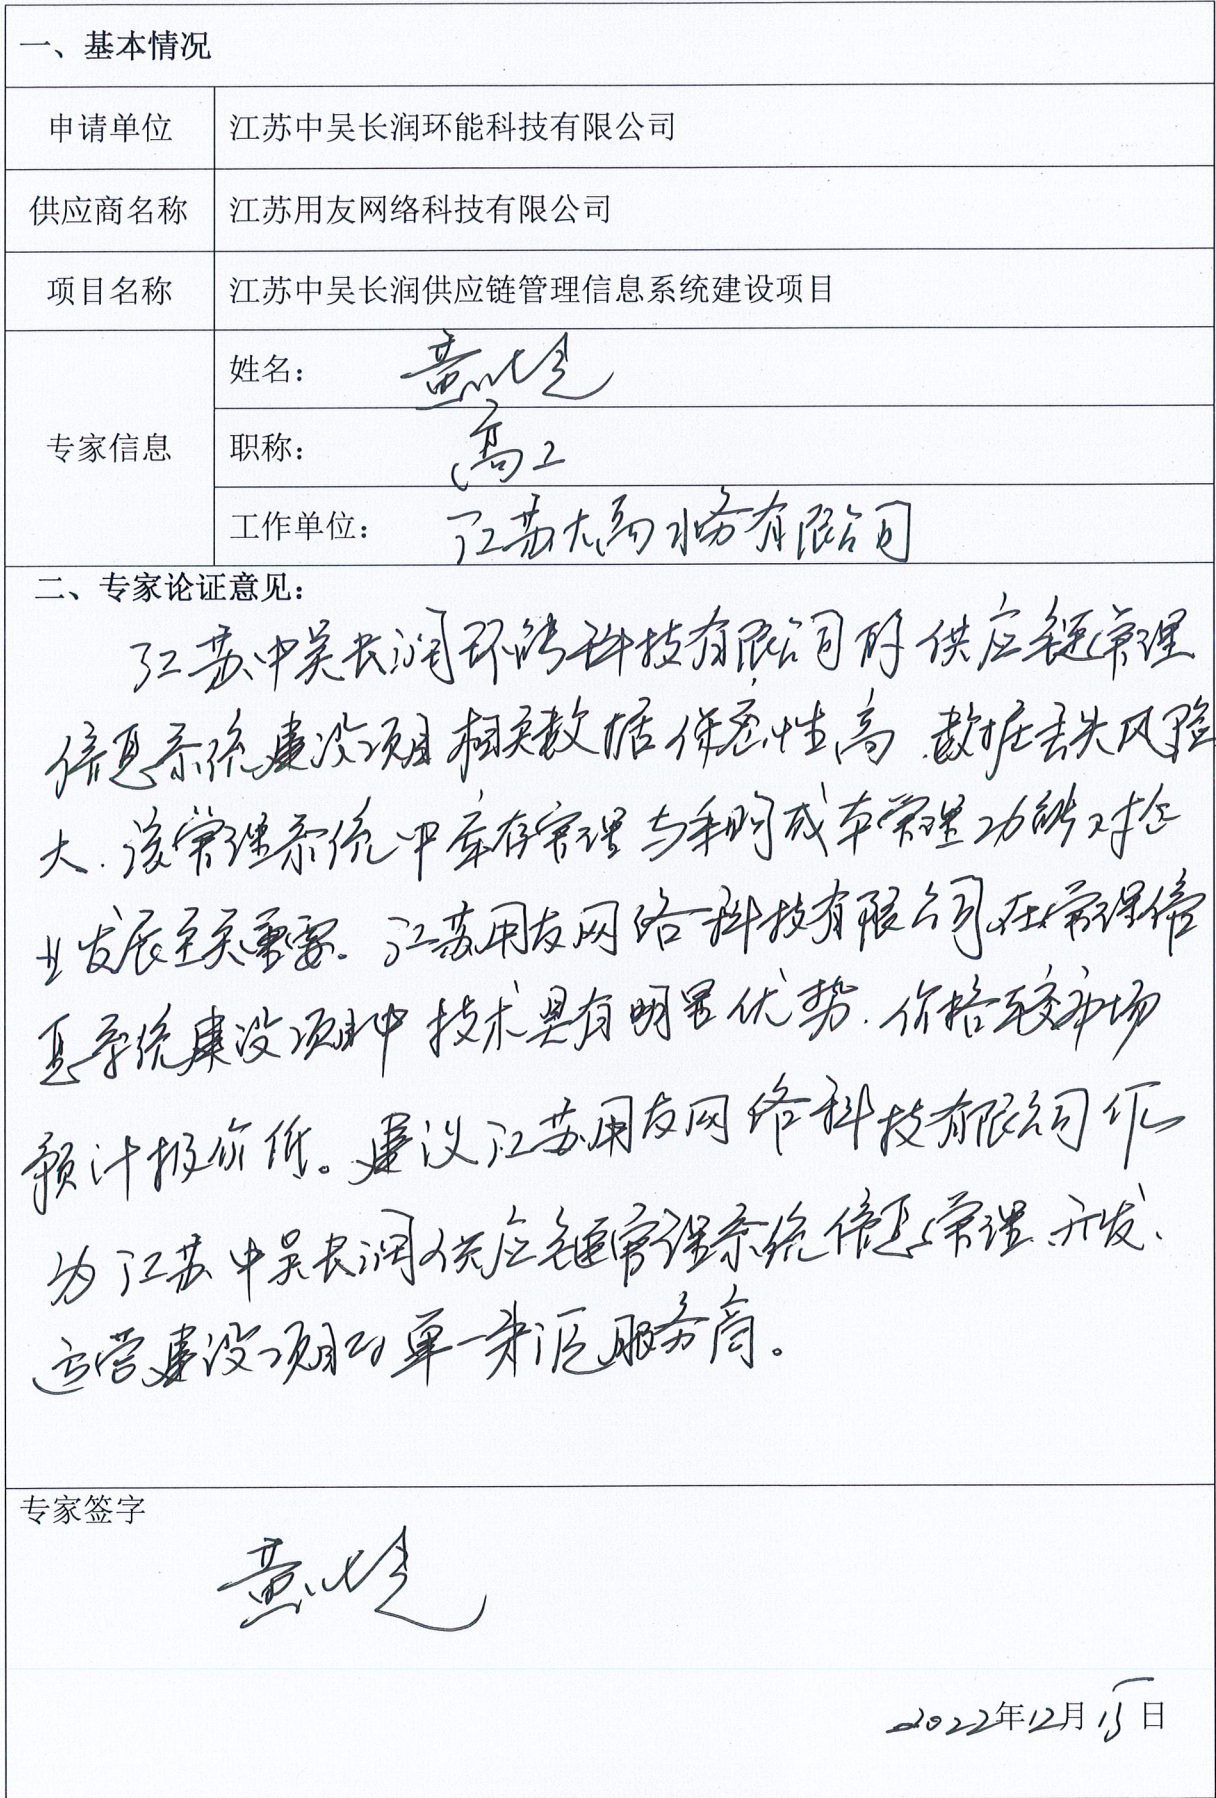 一、基本情况
申请单位 江苏中吴长润环能科技有限公司
供应商名称 江苏用友网络科技有限公司
项目名称 江苏中吴长润供应链管理信息系统建设项目
专家信息
姓名： 黄
职称： 高工
工作单位： 江苏大禹水务有限公司
二、专家论证意见：
江苏中吴长润环能科技有限公司的供应链管理
信息系统建设项目相关数据保密性高，数据丢失风险
大．该管理系统中库存管理与采购成本管理功能对企
业发展至关重要。江苏用友网络科技有限公司在管理信
息系统建设项目中技术具有明显优势．价格较市场
预计报价低。建议江苏用友网络科技有限公司作
为江苏中吴长润供应链管理系统信息管理、开发、
运营建设项目的单一来源服务商。
专家签字
黄
2022年12月15日